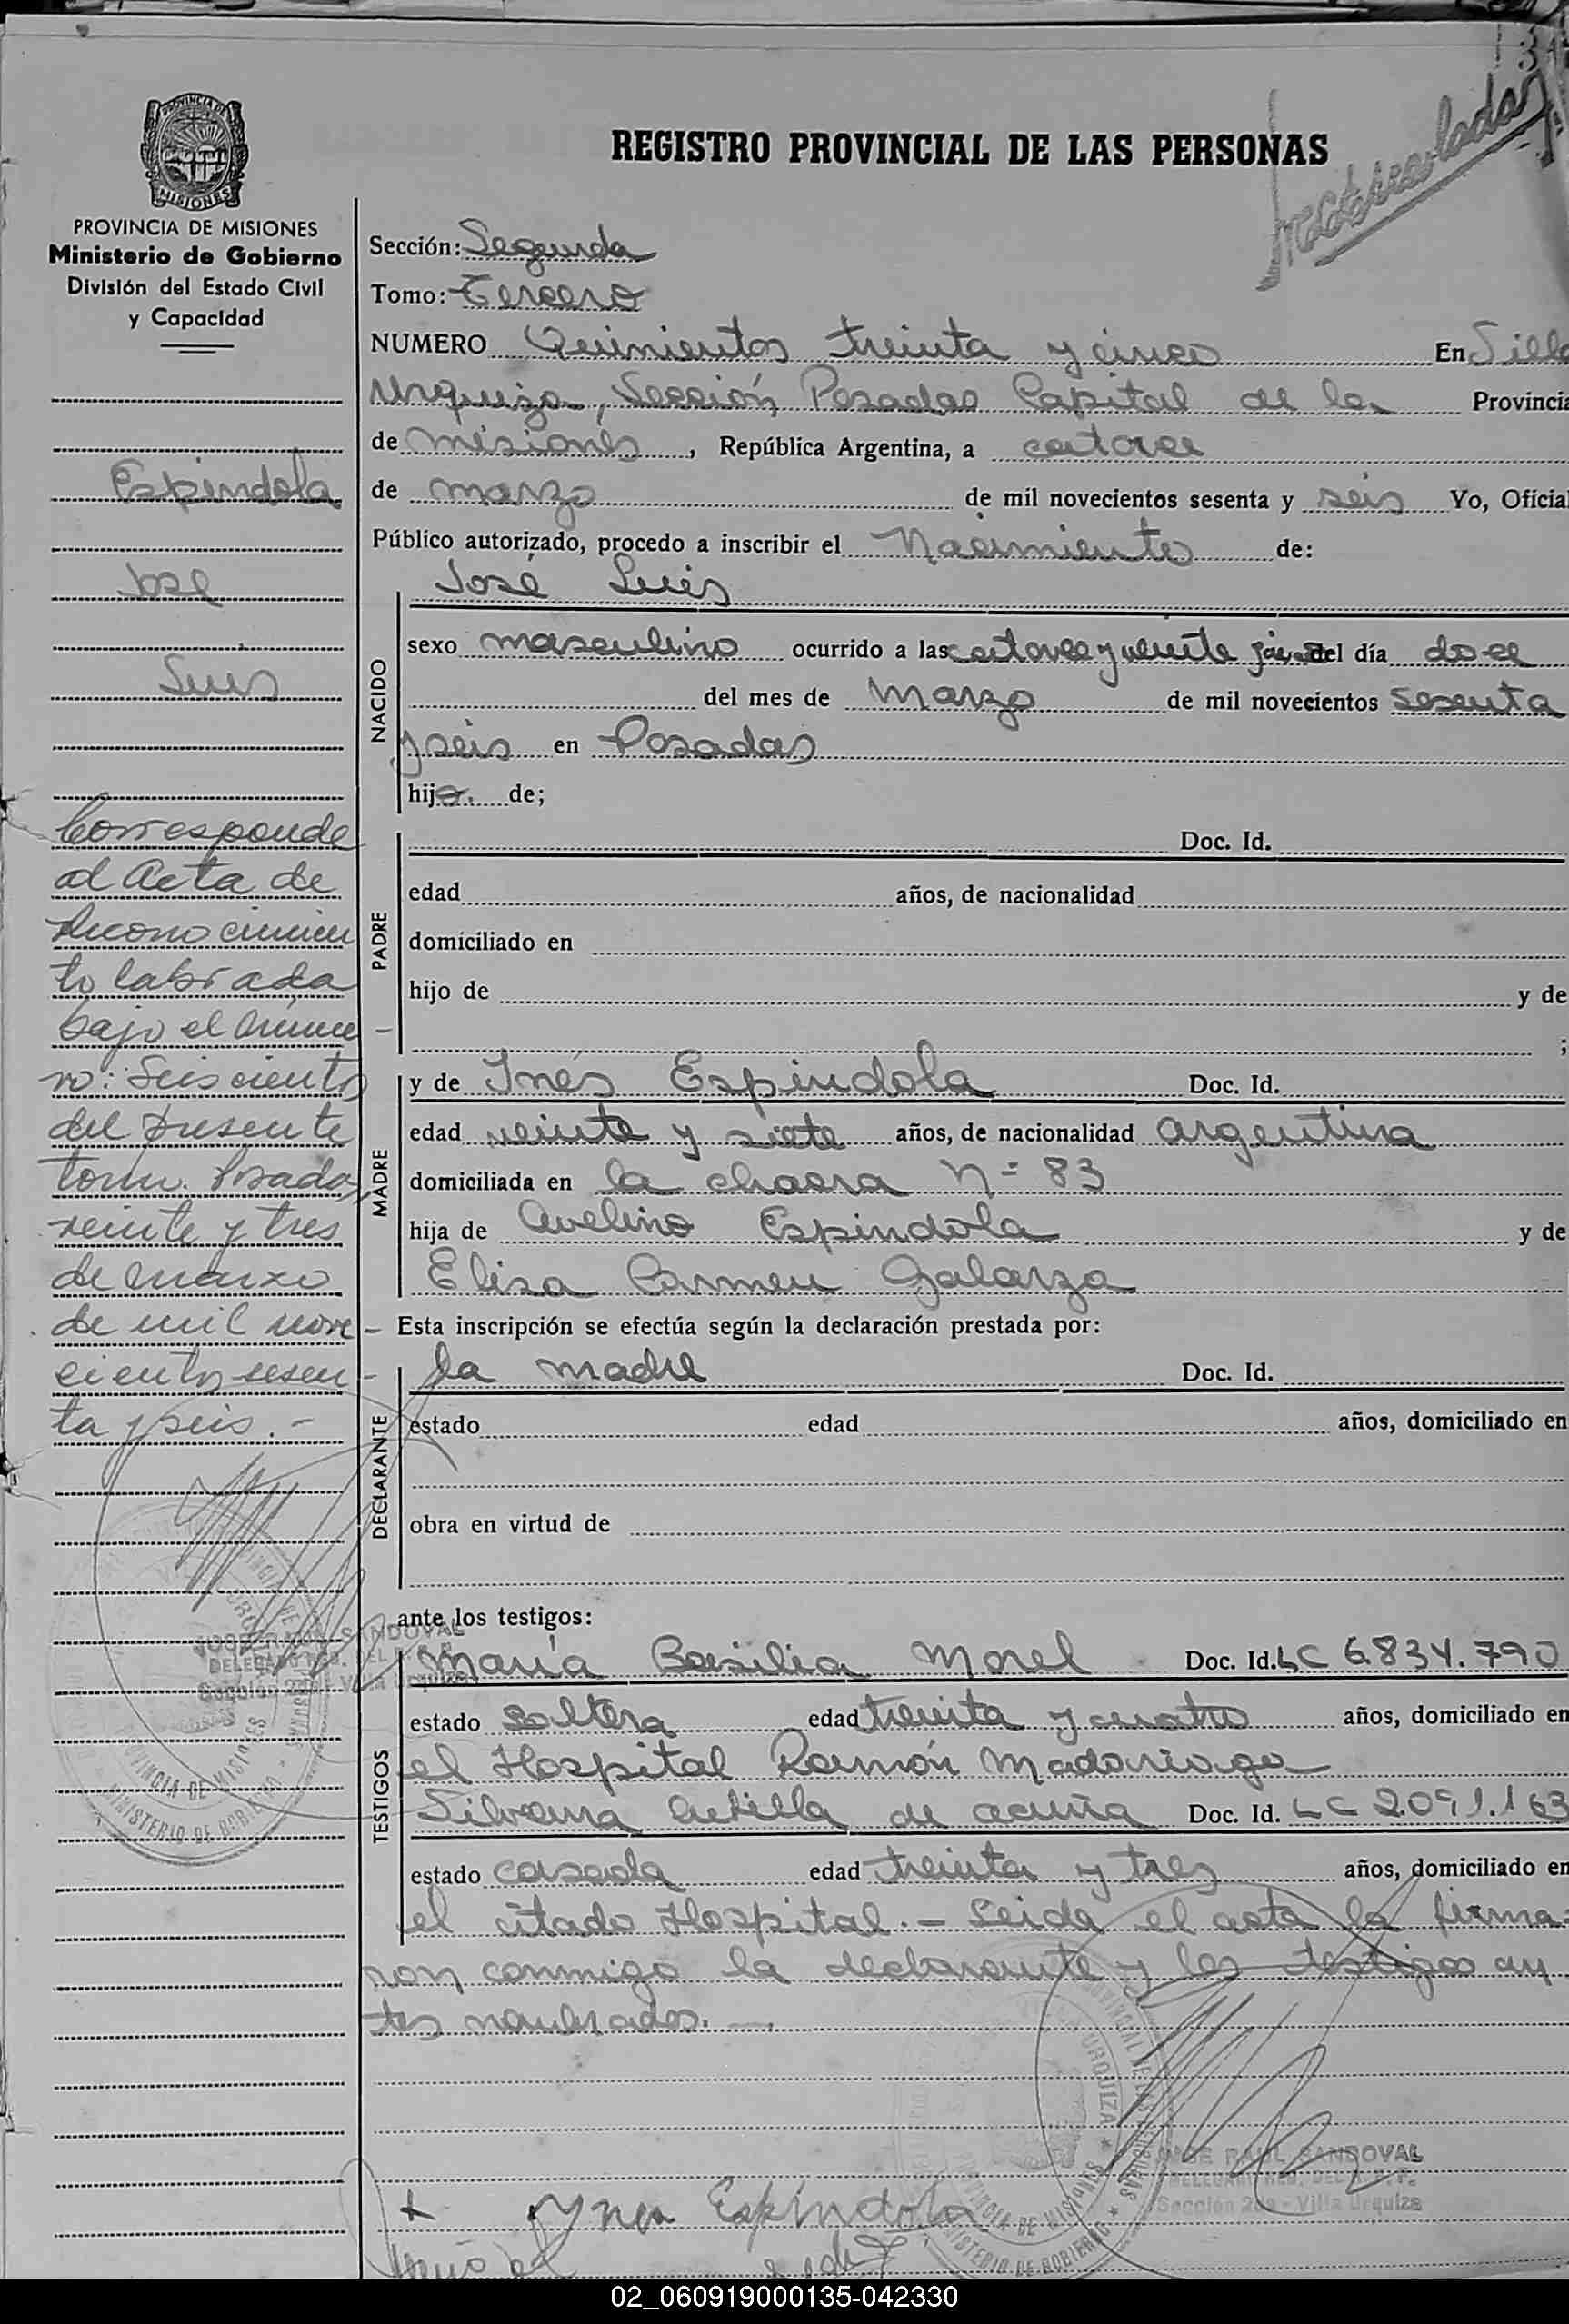 REGISTRO PROVINCIAL DE LAS PERSONAS
PROVINCIA DE MISIONES
PROVINCIA DE MISIONES
Ministerio de Gobierno
División del Estado Civil
y Capacidad
Espindola
José
Luis
Corresponde
al Acta de
Reconocimien
to labrada
bajo el Núme-
ro: Seiscientos
del presente
tomo. Posadas,
veinte y tres
de marzo
de mil nove-
cientos sesen-
ta y seis.-
Sección: Segunda
Tomo: Tercero
NUMERO Quinientos treinta y cinco En Villa
Urquiza, Sección Posadas Capital de la Provincia
de Misiones, República Argentina, a catorce
de marzo de mil novecientos sesenta y seis Yo, Oficial
Público autorizado, procedo a inscribir el Nacimiento de:
José Luis
NACIDO
sexo masculino ocurrido a las catorce y veinte del día doce
del mes de Marzo de mil novecientos sesenta
y seis en Posadas
hijo. de;
PADRE
Doc. Id.
edad años, de nacionalidad
domiciliado en
hijo de y de
;
MADRE
y de Inés Espindola Doc. Id.
edad veinte y siete años, de nacionalidad argentina
domiciliada en la chacra Nº 83
hija de Avelino Espindola y de
Elisa Carmen Galarza
Esta inscripción se efectúa según la declaración prestada por:
DECLARANTE
la madre Doc. Id.
estado edad años, domiciliado en
obra en virtud de
ante los testigos:
TESTIGOS
María Basilia Morel Doc. Id. LC 6.834.790
estado soltera edad treinta y cuatro años, domiciliado en
el Hospital Ramón Madariaga
Silvana de acuña Doc. Id. LC 2.091.163
estado casada edad treinta y tres años, domiciliado en
el citado Hospital.- Leida el acta la firma-
ron conmigo la declarante y los testigos an
tes nombrados.—
JOSE RAUL SANDOVAL
DELEGADO REG. DEL E. P.
Sección 2da - Villa Urquiza
Ynes Espíndola
02_060919000135-042330